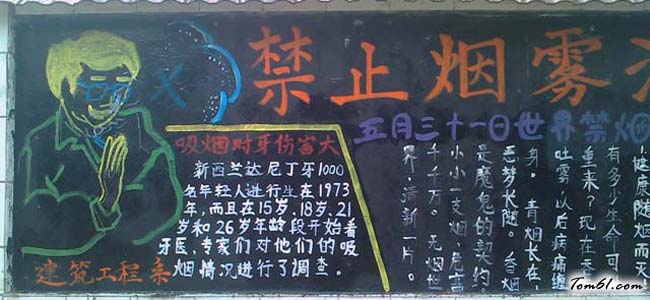 禁止烟雾
五月三十一日世界禁烟
吸烟对牙伤害大
新西兰达尼丁牙1000
名年轻人进行生在1973
年,而且在15岁、18岁、21
岁和26岁年龄段开始看
牙医,专家们对他们的吸
烟情况进行了调查。
建筑工程系
健康随烟而灭
有多少生命可
重来?现在吞
吐雾以后病痛缠
身。青烟长在,
恶梦长随。香烟
是魔鬼的契约
小小一支烟,危害
千千万。无烟世
界,清新一片。
Tom61.com